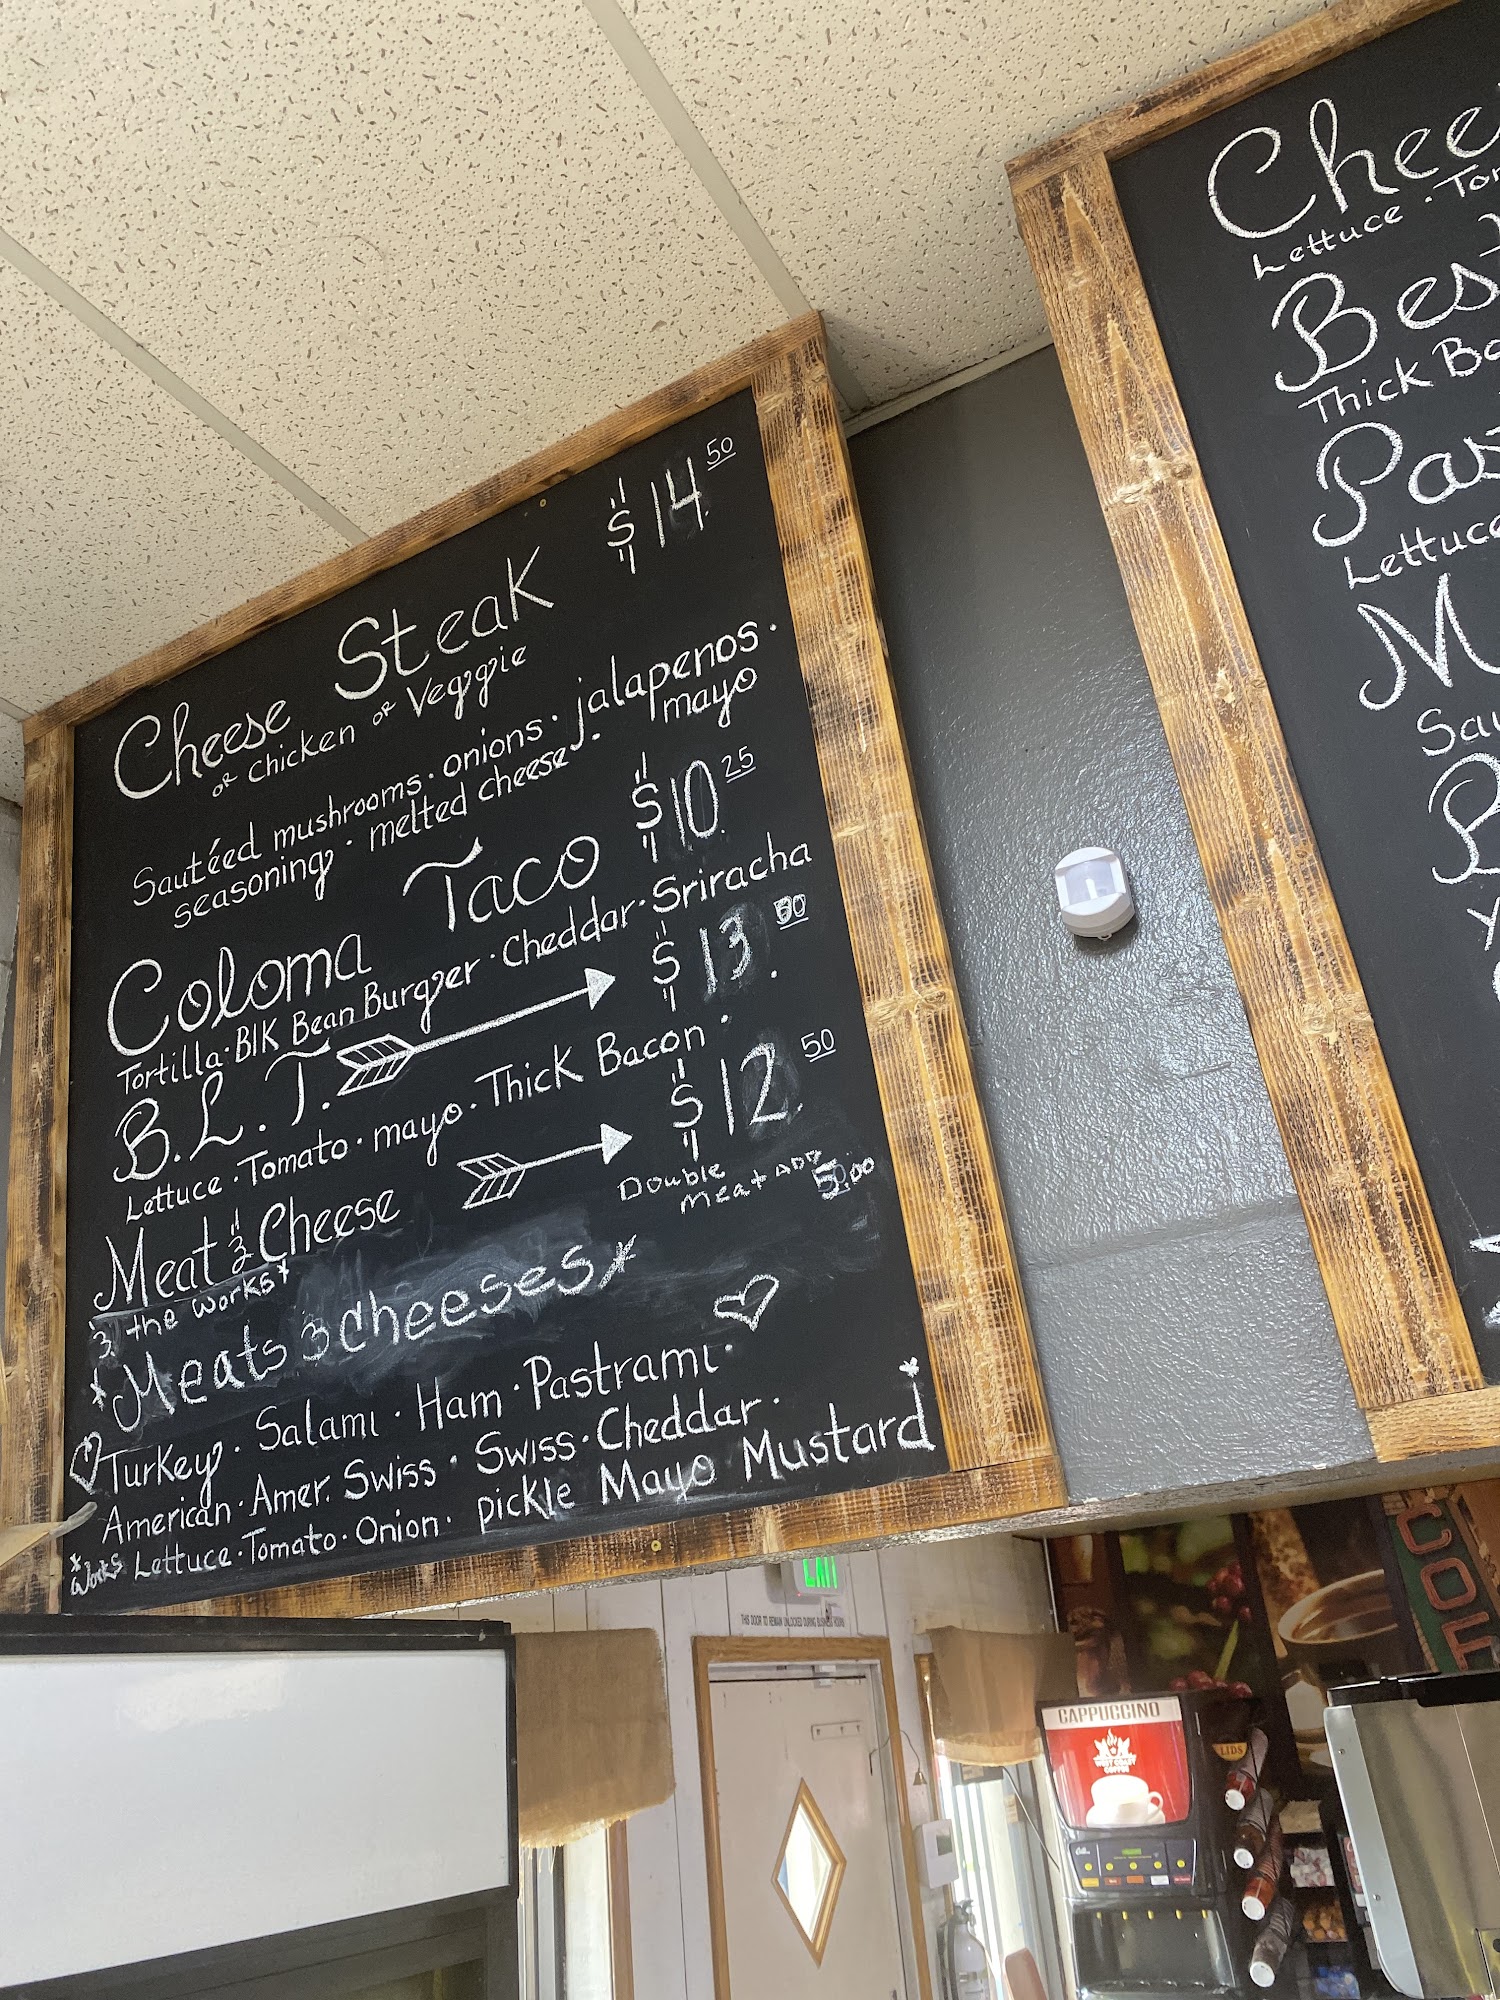 Cheese Steak $14.50
or chicken or Veggie
Sautéed mushrooms · onions · jalapenos ·
seasoning · melted cheese · mayo
Coloma Taco $10.25
Tortilla · Blk Bean Burger · Cheddar · Sriracha
B.L.T. $13.
Lettuce · Tomato · mayo · Thick Bacon ·
Meat & Cheese $12.50
& the works*
Double
Meat ADD 5.00
*Meats & Cheeses*
Turkey · Salami · Ham · Pastrami ·
American · Amer. Swiss · Swiss · Cheddar ·
*Works Lettuce · Tomato · Onion · pickle Mayo Mustard
Chee
Lettuce · Tom
Best
Thick Ba
Pas
Lettuce
M
Sau
B
EXIT
THIS DOOR TO REMAIN UNLOCKED DURING BUSINESS HOURS
CAPPUCCINO
WEST COAST
COFFEE
LIDS
COF